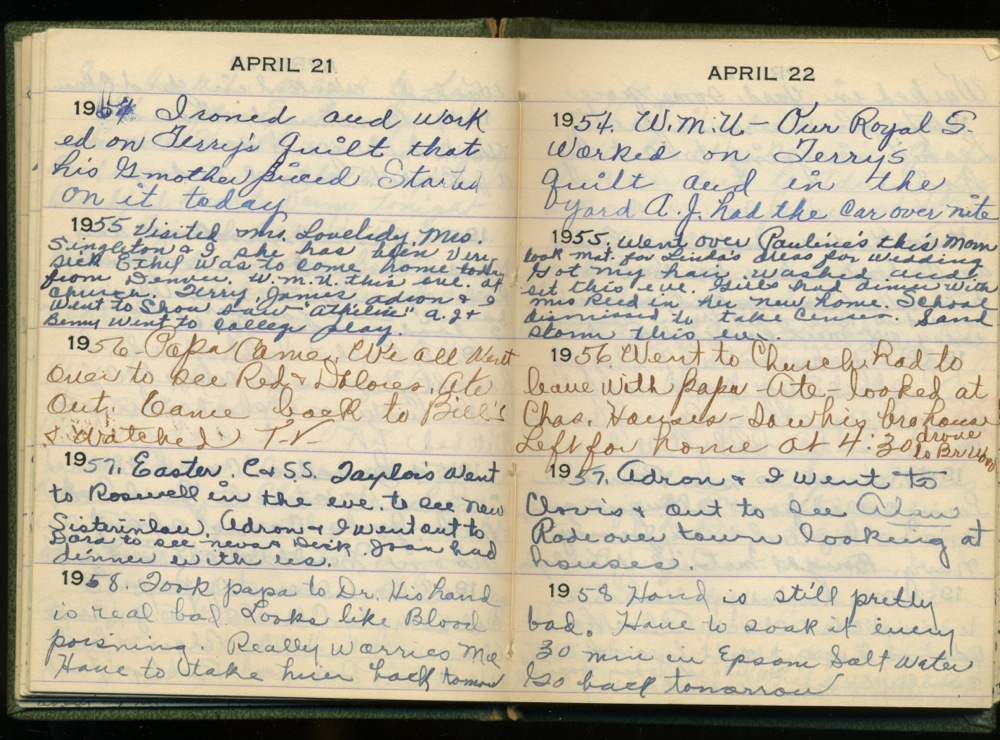 APRIL 21
1954 Ironed and work
ed on Terry's quilt that
his Gmother pieced Started
on it today
1955 Visited Mrs. Lovelidy, Mrs.
Singleton & I she has been very
sick Ethel was to come home today
from Denver. W.M.U. this eve. at
Church. Terry, James adron & I
went to Show saw "Athelene" A.J. &
Benny Went to College play.
1956 Papa Came, We all Went
over to see Red & Dolores, ate
Out. Came back to Bill's
& watched T-V-
1957. Easter. C & S.S. Taylors Went
to Roswell in the eve. to see new
Sisterinlaw. Adron & I went out to
to see neva & Dick Joan had
dinner with us.
1958. Took papa to Dr. His hand
is real bad Looks like Blood
poisning. Really worries Me
Have to take him back tomow
APRIL 22
1954. W.M.U - Our Royal S.
Worked on Terry's
quilt and in the
yard A.J. had the Car over nite
1955. Went over Pauline's this Morn
took mat. for Linda's dress for wedding
Got my hair washed and
set this eve. Girls had dinner with
Mrs Reed in her new home. School
dismissed to take Census. Sand
Storm this eve.
1956 Went to Church, Had to
leave with papa - Ate - looked at
Chas. Houses - Saw his house
Left for home at 4:30 drove
to
1957. Adron & I went to
Clovis & out to see Alan
Rode over town looking at
houses.
1958 Hand is still pretty
bad. Have to soak it every
30 min in Epsom Salt water
Go back tomorrow